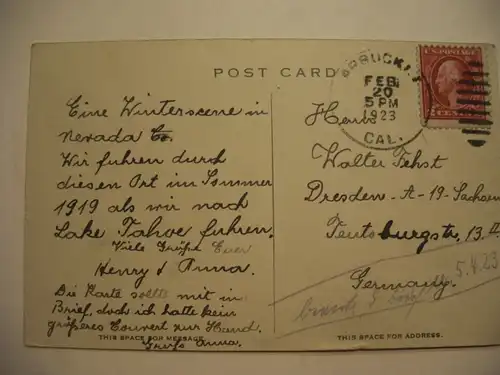 POST CARD
ARBUCKLE
FEB
20
5 PM
1923
CAL.
Eine Winterscene in
Nevada Co.
Wir fuhren durch
diesen Ort im Sommer
1919 als wir nach
Lake Tahoe fuhren.
Viele Grüße Euer
Henry & Anna.
Die Karte sollte mit in
Brief, doch ich hatte kein
größeres Couvert zur Hand.
Gruß Anna.
THIS SPACE FOR MESSAGE
Herrn
Walter Fehst
Dresden - A - 19 - Sachsen
Teutsburgstr. 13. II
Germany.
5.4.23
THIS SPACE FOR ADDRESS.